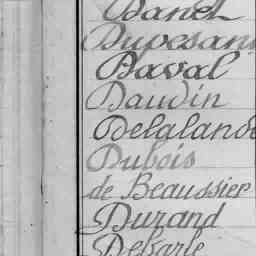 Danet
Dupesan
Daval
Daudin
Delalande
Dubois
de Beaussier
Durand
Delsarte